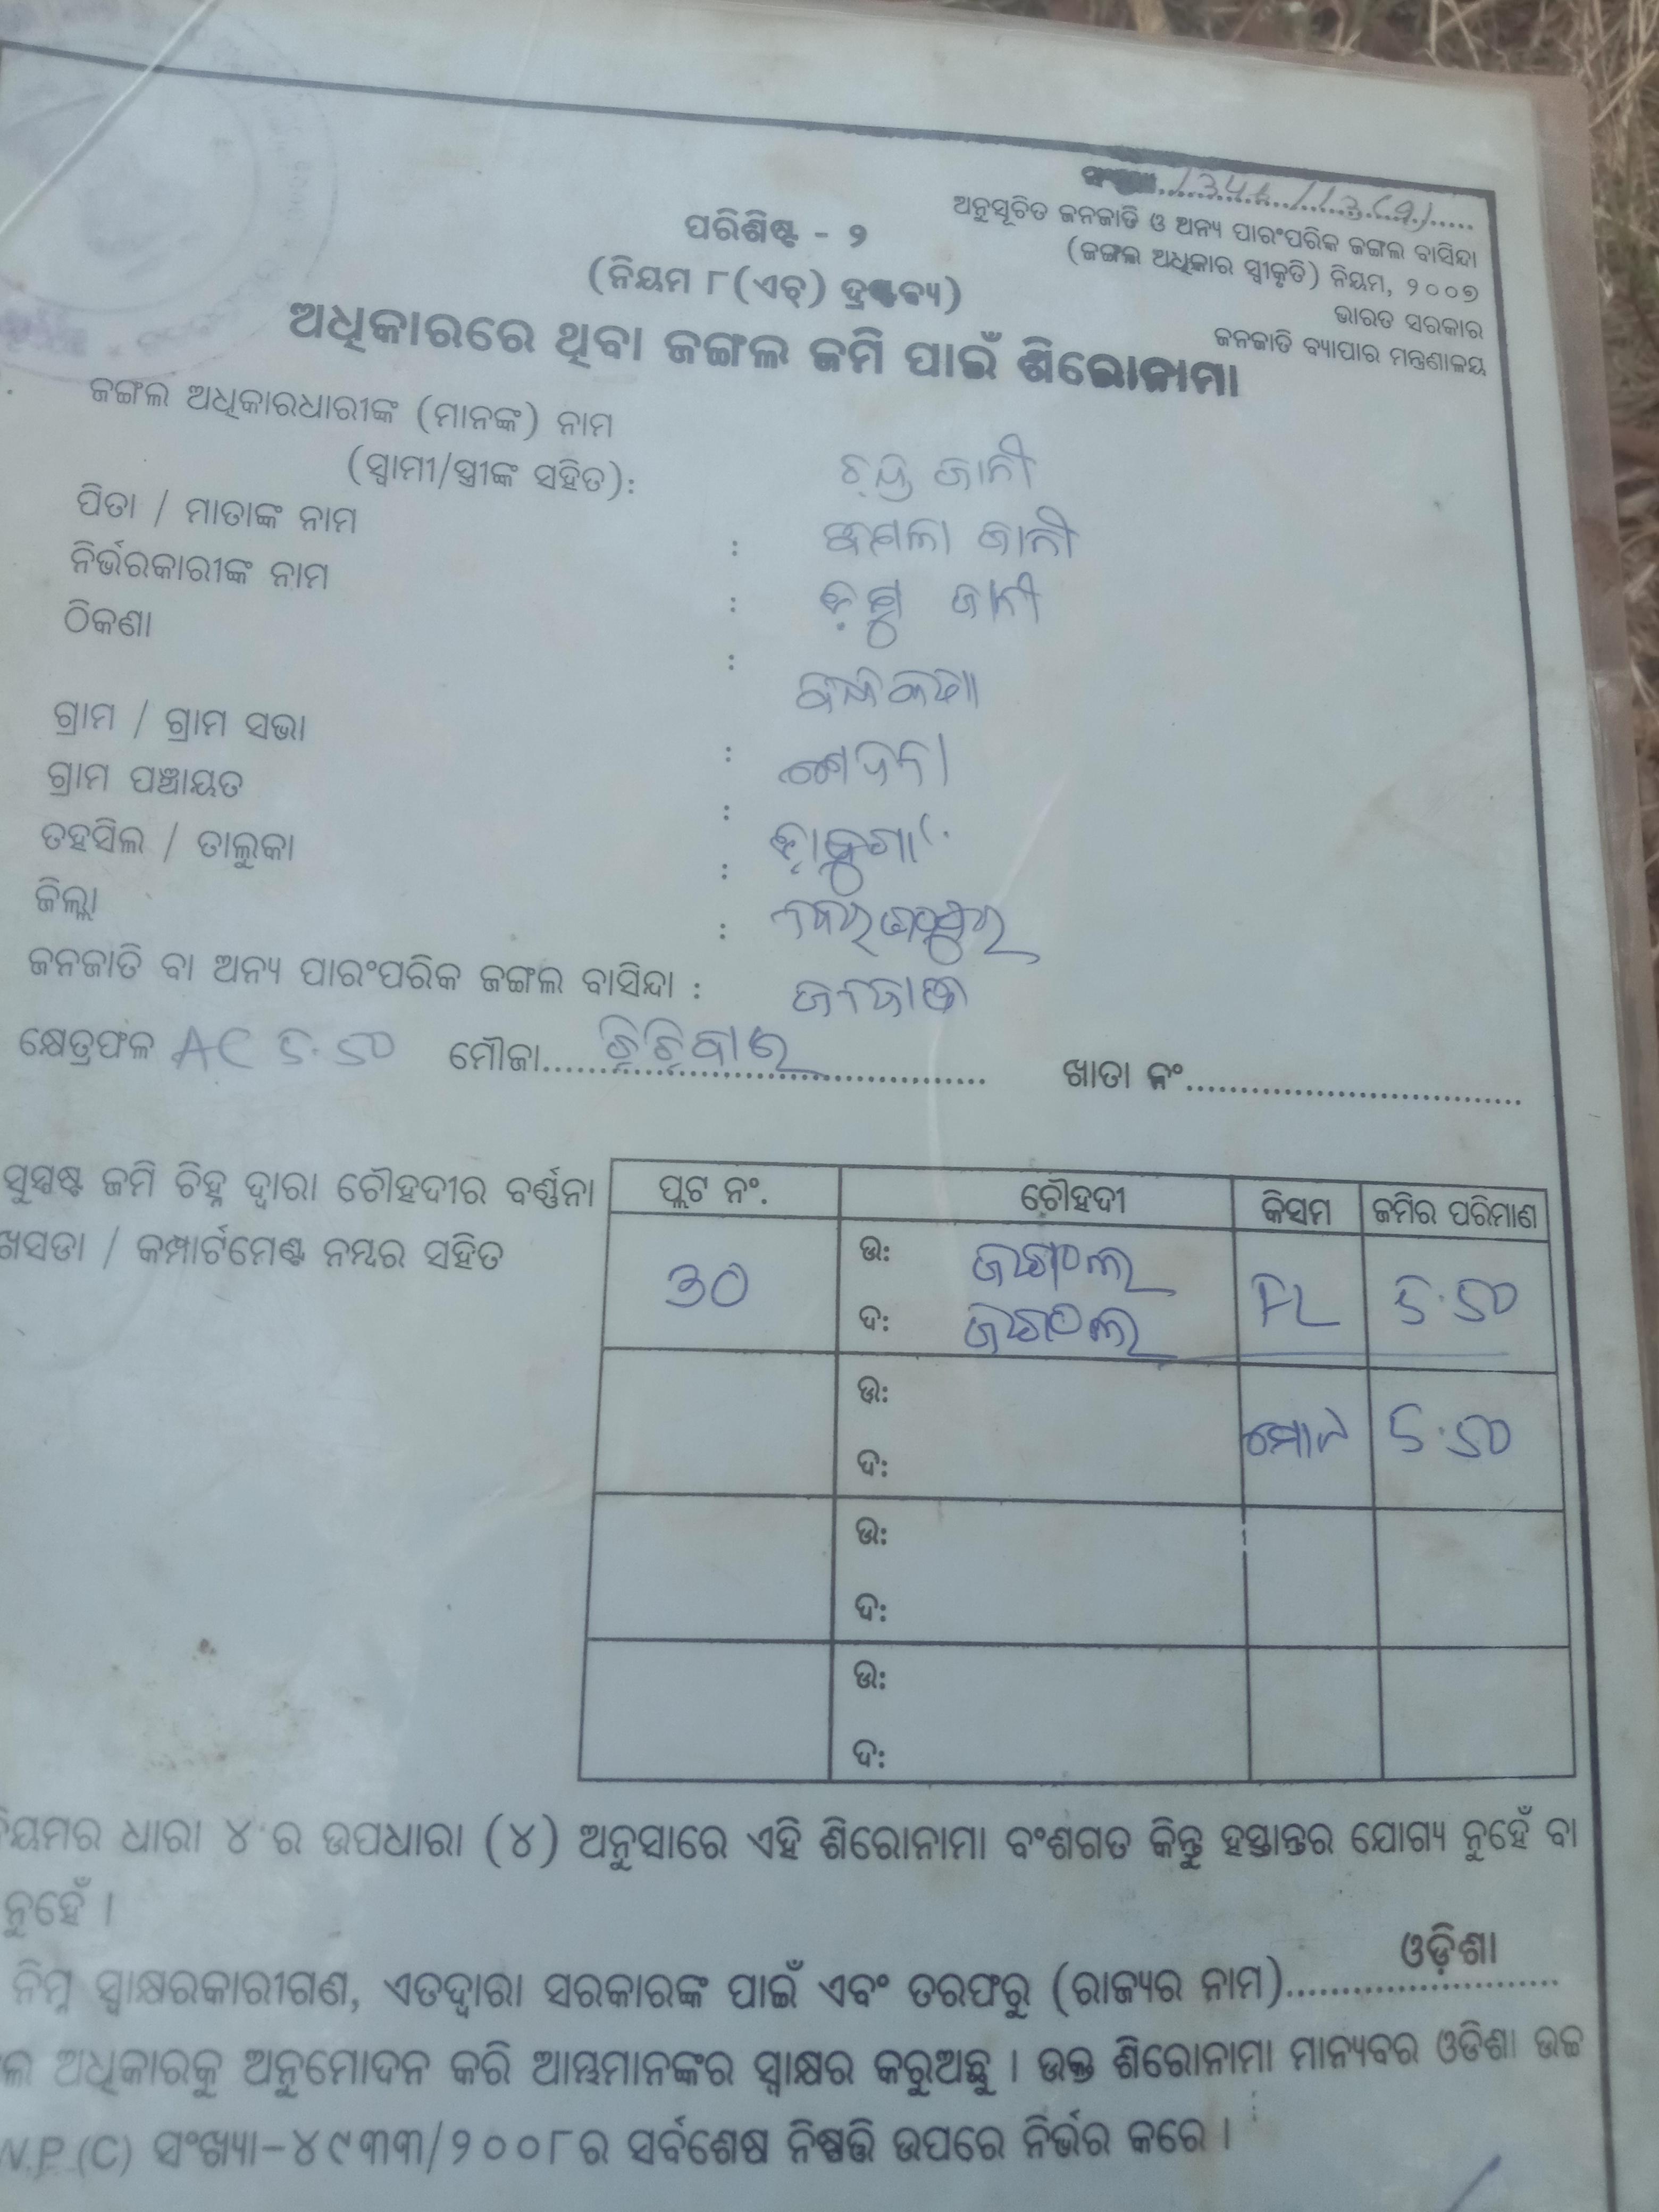 ସଂଖ୍ୟା
ଅନୁସୂଚିତ ଜନଜାତି ଓ ଅନ୍ୟ ପାରଂପରିକ ଜଙ୍ଗଲ ବାସିନ୍ଦା
(ଜଙ୍ଗଲ ଅଧିକାର ସ୍ୱୀକୃତି) ନିୟମ, ୨୦୦୭
ଭାରତ ସରକାର
ଜନଜାତି ବ୍ୟାପାର ମନ୍ତ୍ରଣାଳୟ
ପରିଶିଷ୍ଟ - ୨
(ନିୟମ ୮(ଏଚ୍) ଦ୍ରଷ୍ଟବ୍ୟ)
ଅଧିକାରରେ ଥିବା ଜଙ୍ଗଲ ଜମି ପାଇଁ ଶିରୋନାମା
ଜଙ୍ଗଲ ଅଧିକାରଧାରୀଙ୍କ (ମାନଙ୍କ) ନାମ
(ସ୍ୱାମୀ/ସ୍ତ୍ରୀଙ୍କ ସହିତ): ଜାନୀ
ପିତା / ମାତାଙ୍କ ନାମ : ଜାନୀ
ନିର୍ଭରକାରୀଙ୍କ ନାମ : ଜାନୀ
ଠିକଣା :
ଗ୍ରାମ / ଗ୍ରାମ ସଭା :
ଗ୍ରାମ ପଞ୍ଚାୟତ :
ତହସିଲ / ତାଲୁକା :
ଜିଲ୍ଲା : ନବରଙ୍ଗପୁର
ଜନଜାତି ବା ଅନ୍ୟ ପାରଂପରିକ ଜଙ୍ଗଲ ବାସିନ୍ଦା : ଜନଜାତି
କ୍ଷେତ୍ରଫଳ AC 5.50 ମୌଜା ଖାତା ନଂ
ସୁସ୍ପଷ୍ଟ ଜମି ଚିହ୍ନ ଦ୍ୱାରା ଚୌହଦୀର ବର୍ଣ୍ଣନା
ଖସଡା / କମ୍ପାର୍ଟମେଣ୍ଟ ନମ୍ବର ସହିତ
ପ୍ଲଟ ନଂ. ଚୌହଦୀ କିସମ ଜମିର ପରିମାଣ
30 ଉ: ଜଙ୍ଗଲ FL 5.50
ଦ: ଜଙ୍ଗଲ
ଉ: ମୋଟ 5.50
ଦ:
ଉ:
ଦ:
ଉ:
ଦ:
ଧାରା ୪ ର ଉପଧାରା (୪) ଅନୁସାରେ ଏହି ଶିରୋନାମା ବଂଶଗତ କିନ୍ତୁ ହସ୍ତାନ୍ତର ଯୋଗ୍ୟ ନୁହେଁ ବା
ନୁହେଁ ।
ନିମ୍ନ ସ୍ୱାକ୍ଷରକାରୀଗଣ, ଏତଦ୍ୱାରା ସରକାରଙ୍କ ପାଇଁ ଏବଂ ତରଫରୁ (ରାଜ୍ୟର ନାମ) ଓଡ଼ିଶା
ଅଧିକାରକୁ ଅନୁମୋଦନ କରି ଆମ୍ଭମାନଙ୍କର ସ୍ୱାକ୍ଷର କରୁଅଛୁ । ଉକ୍ତ ଶିରୋନାମା ମାନ୍ୟବର ଓଡିଶା ଉଚ୍ଚ
W.P.(C) ସଂଖ୍ୟା-୪୯୩୩/୨୦୦୮ର ସର୍ବଶେଷ ନିଷ୍ପତ୍ତି ଉପରେ ନିର୍ଭର କରେ ।